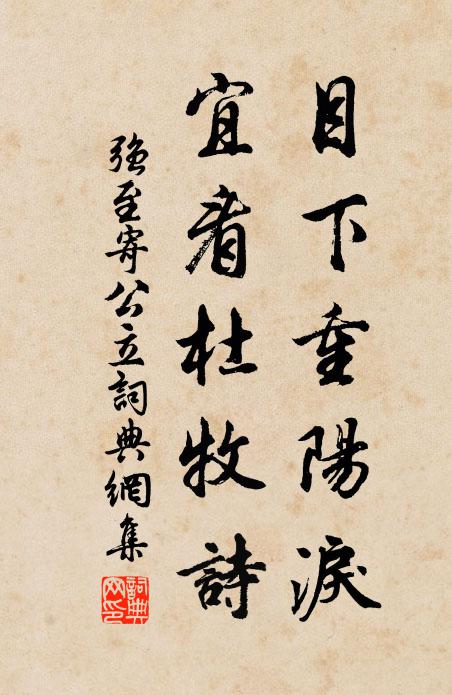 目下重陽淚
宜看杜牧詩
強至寄公立詞典網集
詞典網印